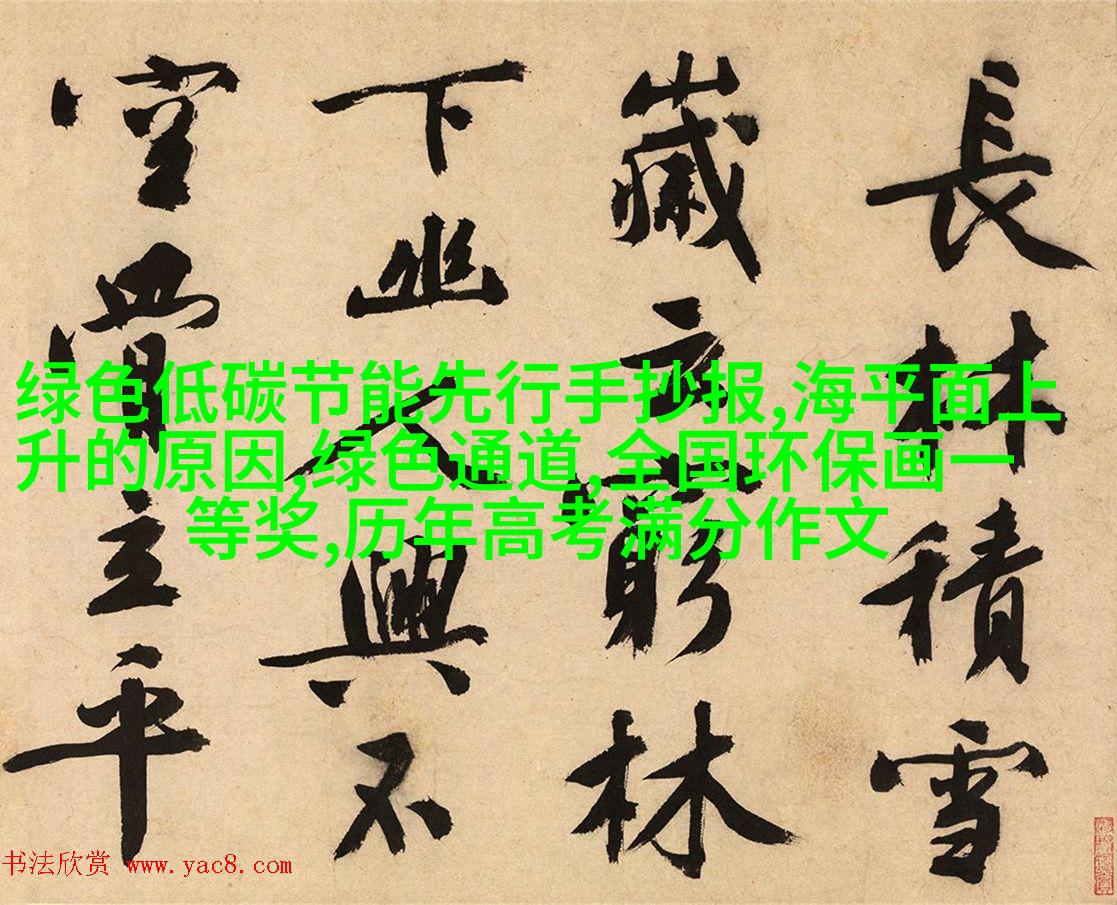 長林積雪
歲方窮林
下幽人興不
空立平
绿色低碳节能先行手抄报,海平面上
升的原因,绿色通道,全国环保画一
等奖,历年高考满分作文
书法欣赏 www.yac8.com